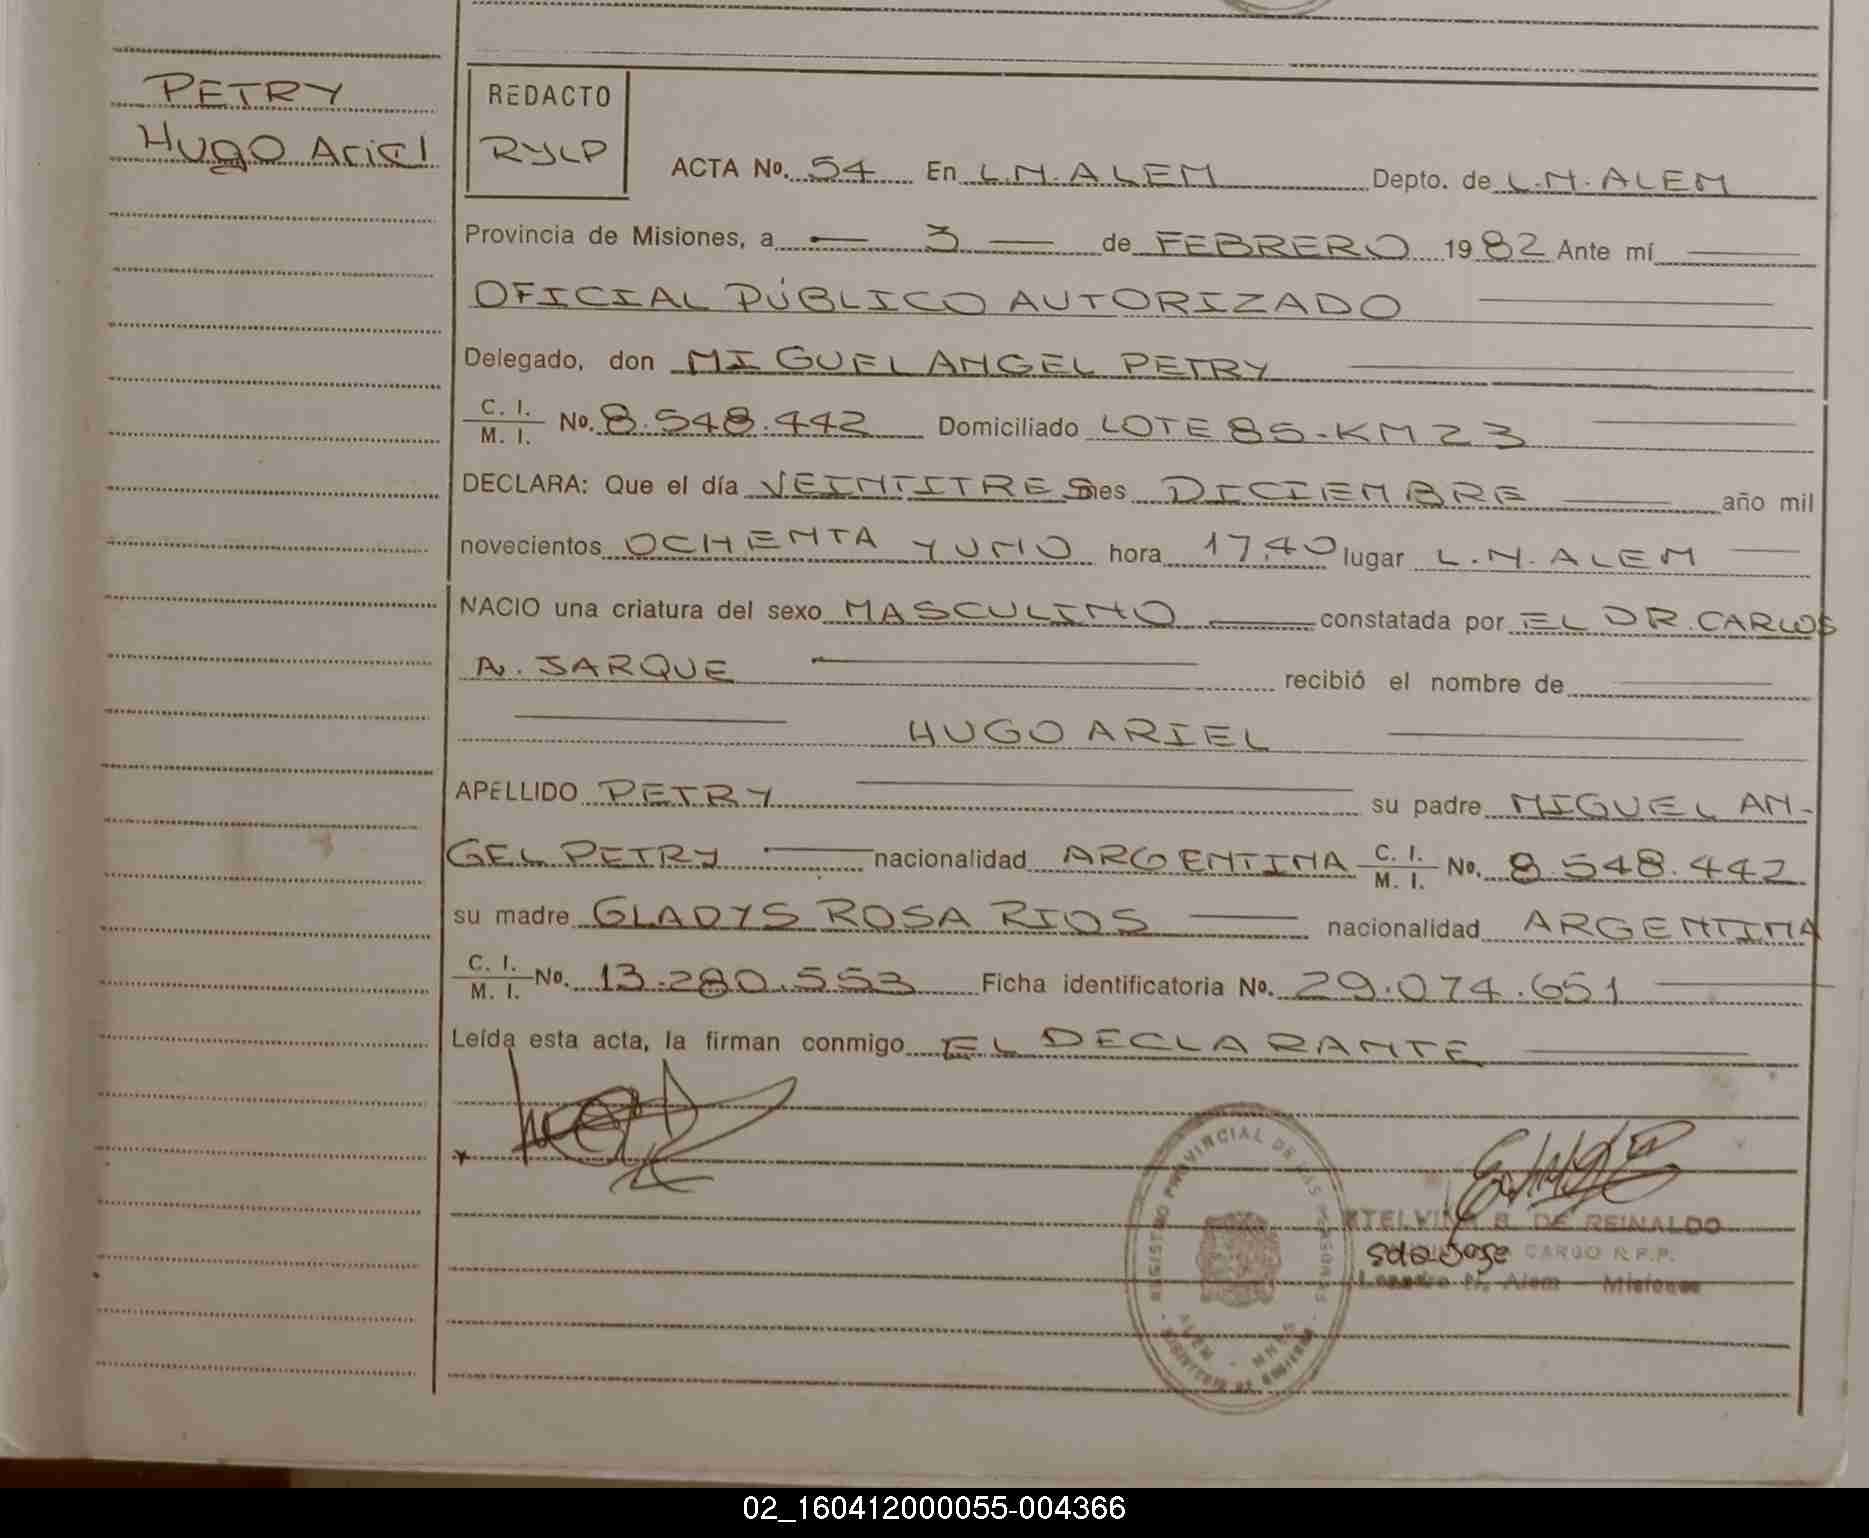 PETRY
Hugo Ariel
REDACTO
RYLP
ACTA No. 54 En L.N. ALEM Depto. de L.N. ALEM
Provincia de Misiones, a 3 de FEBRERO 1982 Ante mí
OFICIAL PÚBLICO AUTORIZADO
Delegado, don MIGUEL ANGEL PETRY
C. I. M. I. No. 8.548.442 Domiciliado LOTE 85-KM 23
DECLARA: Que el día VEINTITRES mes DICIEMBRE año mil
novecientos OCHENTA Y UNO hora 17,40 lugar L.N. ALEM
NACIO una criatura del sexo MASCULINO constatada por EL DR. CARLOS
A. JARQUE recibió el nombre de
HUGO ARIEL
APELLIDO PETRY su padre MIGUEL AN-
GEL PETRY nacionalidad ARGENTINA C. I. M. I. No. 8.548.442
su madre GLADYS ROSA RIOS nacionalidad ARGENTINA
C. I. M. I. No. 13.280.553 Ficha identificatoria No. 29.074.651
Leída esta acta, la firman conmigo EL DECLARANTE
REGISTRO PROVINCIAL DE LAS PERSONAS
ALEM - MNES
DE REINALDO
CARGO R.P.P.
Leandro N. Alem - Misiones
02_160412000055-004366